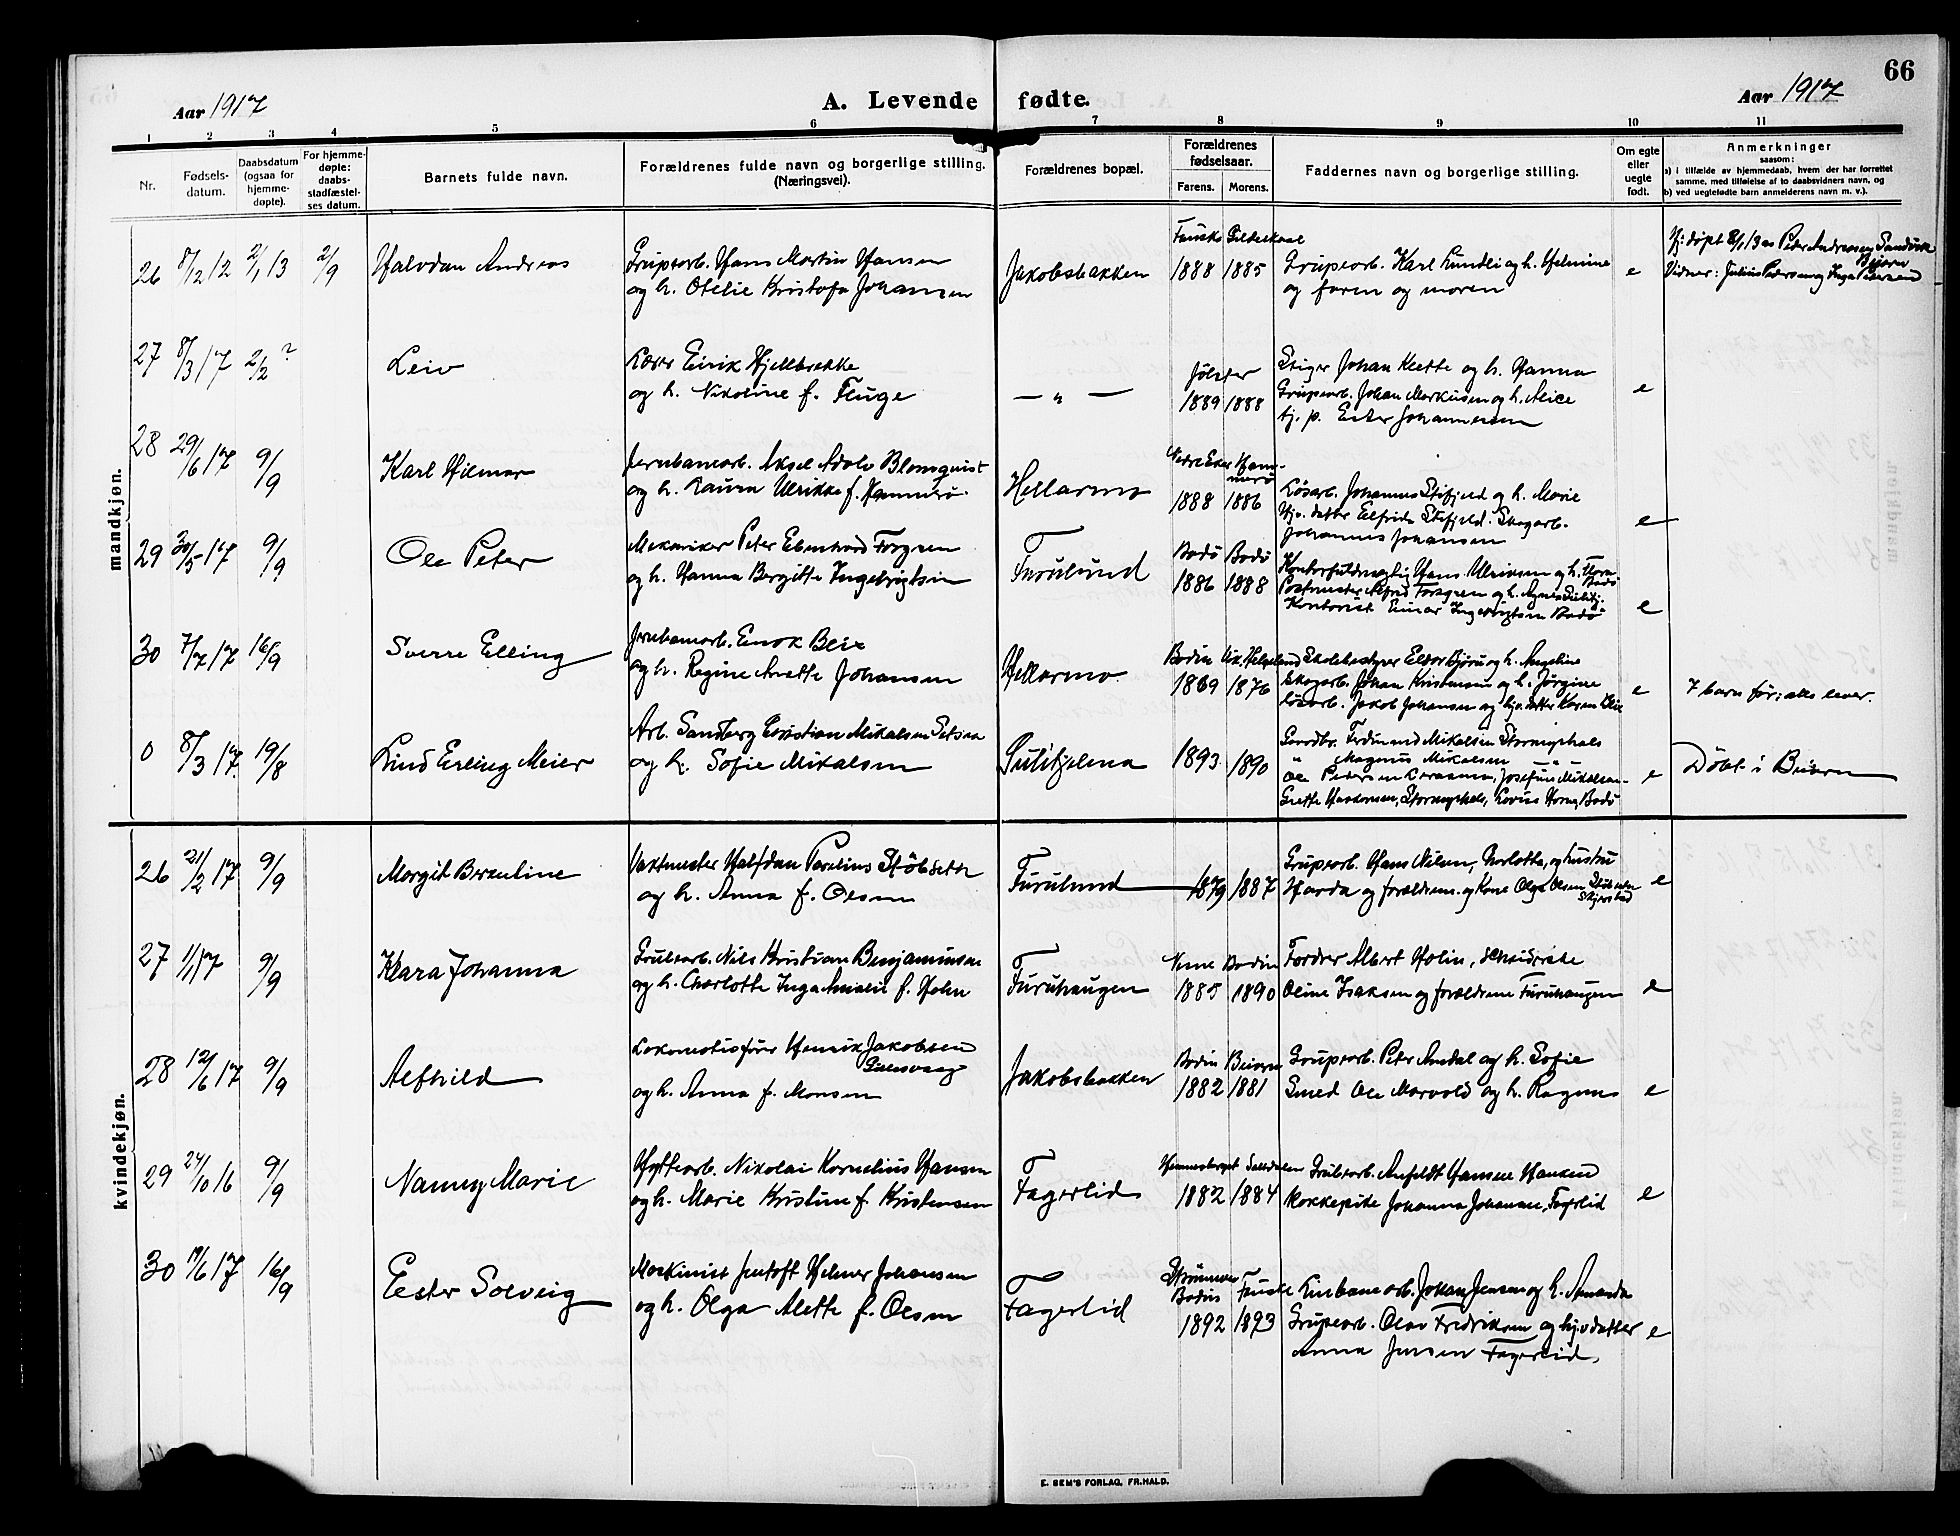 66
Aar 1917
A. Levende fødte.
Aar 1917
1 2 3 4 5 6 7 8 9 10 11
Nr.
Fødsels-
datum.
Daabsdatum
(ogsaa for
hjemme-
døpte).
For hjemme-
døpte:
daabs-
stadfæstel-
ses datum.
Barnets fulde navn.
Forældrenes fulde navn og borgerlige stilling.
(Næringsvei).
Forældrenes bopæl.
Forældrenes
fødselsaar.
Farens. Morens.
Faddernes navn og borgerlige stilling.
Om egte
eller
uegte
født.
Anmerkninger
saasom:
a) i tilfælde av hjemmedaab, hvem der har forrettet
samme, med tilføielse af to daabsvidners navn, og
b) ved uegtefødte barn anmelderens navn m. v.).
mandkjøn.
26 8/12 12 2/1 13 2/9 Halvdan Andreas
Grubearb. Hans Martin Hansen
og h. Otelie Kristofa Johansen
Jakobsbakken
Fauske Gildeskaal
1888 1885
Grubearb. Karl Lundli og h. Helmine
og faren og moren
e
Hj. døpt 2/1 13 av Peder Andreassen Sandvik
Beiarn
Vidner: Julius Pedersen og Inga Pedersen
27 8/3 17 2/2 ? Leiv
Lærer Eirik Hjellbrekke
og h. Nikoline f. Fluge
— " —
Jølster
1889 1888
Stiger Johan Klette og h. Hanna
Grubearb. Johan Markussen og h. Alice
tj. p. Ester Johannessen
e
28 29/6 17 9/9 Karl Hilmar
Jernbanearb. Aksel Adolv Blomqvist
og h. Laura Ulrikke f. Hammerø
Hellarmo
Nedre Eker Ham-
merø
1888 1886
Løsarb. Johannes Stifjeld og h. Marie
Hjv. datter Elfrida Stifjeld. Skogarb.
Johannes Johansen
e
29 30/5 17 9/9 Ole Peter
Mekaniker Peter Edenhard Forsgren
og h. Hanna Bergitte Ingebrigtsen
Furulund
Bodø Bodø
1886 1888
Kontorfuldmægtig Hans Ulriksen og h. Thora
Bodø
Postmester Alfred Forsgren og h. Agnes Sulitj.
Kontorist Einar Ingebrigtsen Bodø
e
30 7/7 17 16/9 Sverre Elling
Jernbanearb. Enok Blix
og h. Regine Anette Johansen
Hellarmo
Bodin Vik, Helgeland
1869 1876
Skolebestyrer Eldor Bjøru og h. Angeline
Skogarb. Johan Kristensen og h. Jørgine
Løsarb. Jakob Johansen og hjv. datter Karen Blix
e
7 barn før; alle lever.
0 8/3 17. 19/8 Lind Erling Meier
Arb. Sandberg Kristian Mikalsen Setsaa
og h. Sofie Mikalsen
Sulitjelma
1893 1890
Gaardbr. Ferdinand Mikalsen Stormyrhals
" Magnus Mikalsen "
e
Døbt i Beiarn
kvindekjøn.
26 21/2 17 9/9 Margit Berntine
og h. Anna f. Olsen
Furulund
1879 1887
Grubearb. Hans Nilsen, Charlotta, og hustru
Harda og forældrene. og Kone Olga Olsen Støbseter
Skjerstad
e
27 1/1 17 9/9 Klara Johanna
Grubearb. Nils Kristian Benjaminsen
og h. Charlotte Inga Amalie f. Holm
Furuhaugen
Nesne Bodin
1885 1890
Fordrer Albert Holm, Scheiderske
Oline Isaksen og forældrene Furuhaugen
e
28 12/6 17 9/9 Alfhild
Lokomotivfører Henrik Jakobsen
og h. Anna f. Monsen
Jakobsbakken
Bodin Beiarn
1882 1881
Grubearb. Peter Amdal og h. Sofie
Smed Ole Morvold og h. Ragna
e
29 24/10 16 9/9 Nanny Marie
Hyttearb. Nikolai Kornelius Hansen
og h. Marie Kristine f. Kristensen
Fagerlid
Hemnesberget Saltdalen
1882 1884
Grubearb. Anfeldt Hansen Hanken
Kokkepike Johanna Johansen, Fagerlid
e
30 19/6 17 16/9 Ester Solveig
Maskinist Jentoft Helmer Johansen
og h. Olga Alette f. Olsen
Fagerlid
Strømmen
Bodin Fauske
1892 1893
Linbanearb. Johan Jensen og h. Amanda
Grubearb. Olav Fredriksen og hjv. datter
Anna Jensen Fagerlid.
e
E. SEM'S FORLAG, FR.HALD.